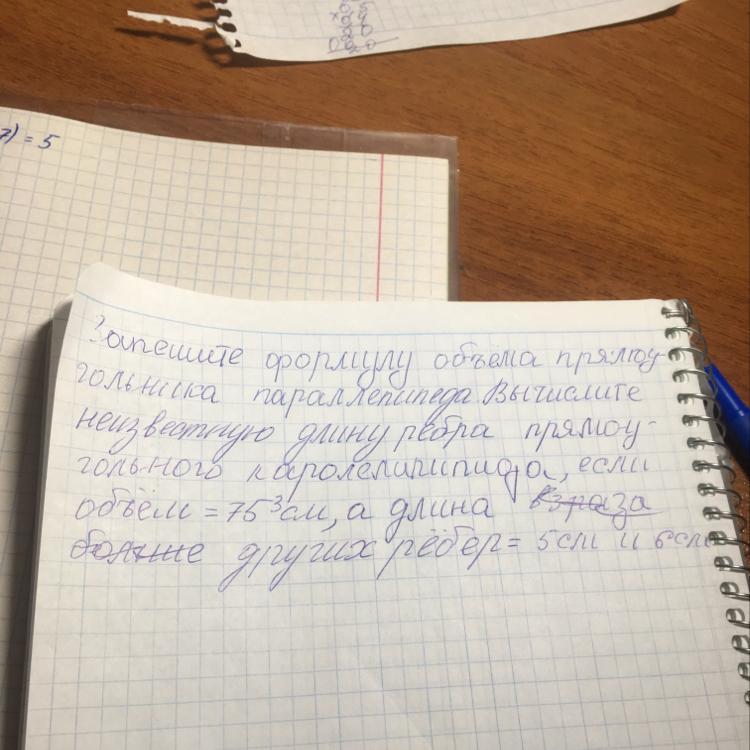 7) = 5
Запешите формулу объёма прямоу-
гольника параллепипеда Вычислите
неизвестную длину ребра прямоу-
гольного
если
объём = 75³см, а длина
других рёбер = 5см и 6см